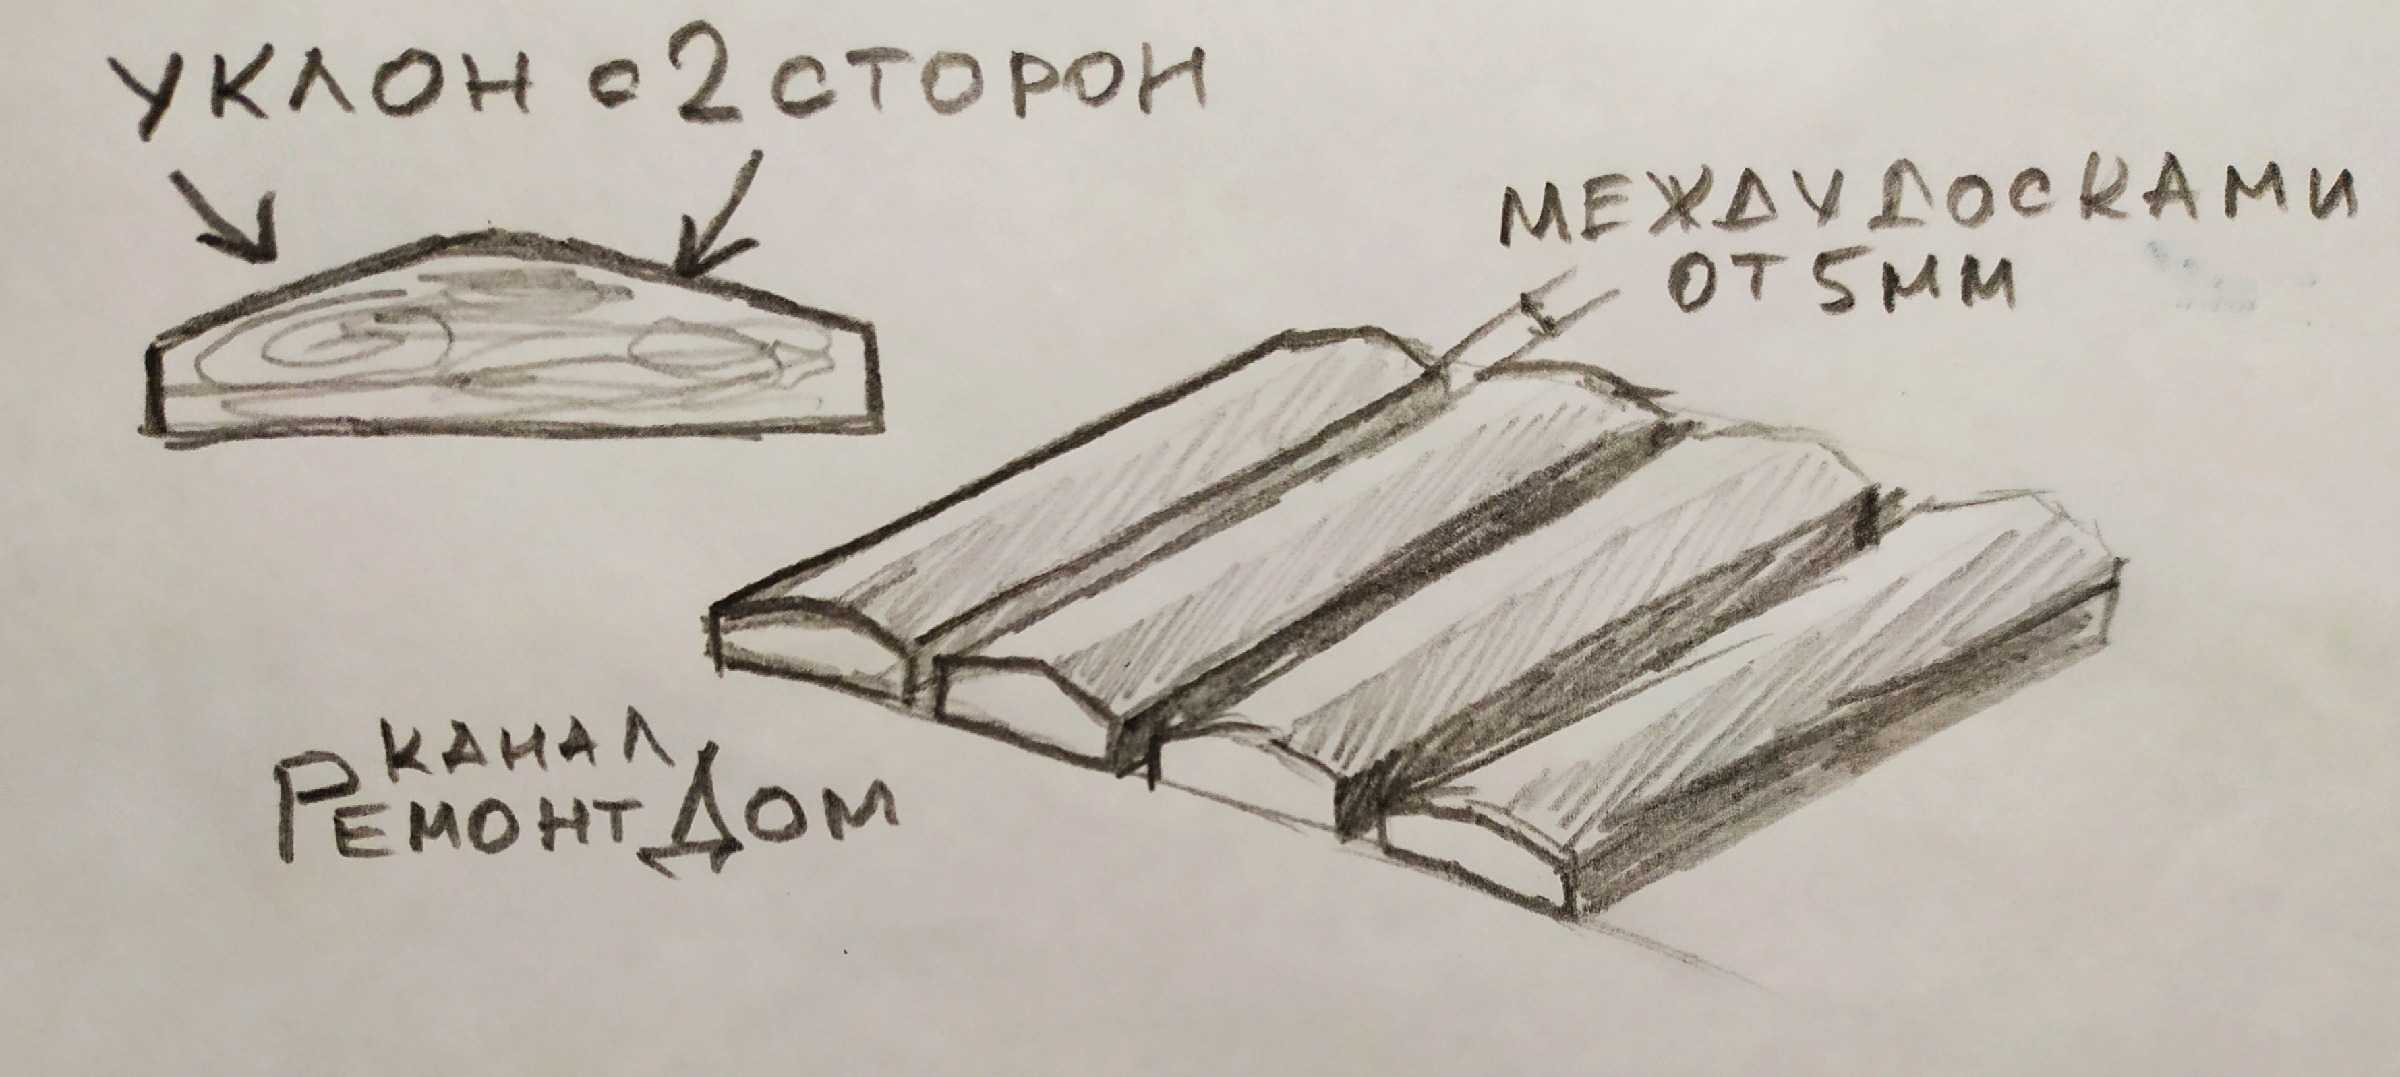 УКЛОН с 2 СТОРОН
МЕЖДУ ДОСКАМИ
ОТ 5 ММ
КАНАЛ
РЕМОНТ ДОМ